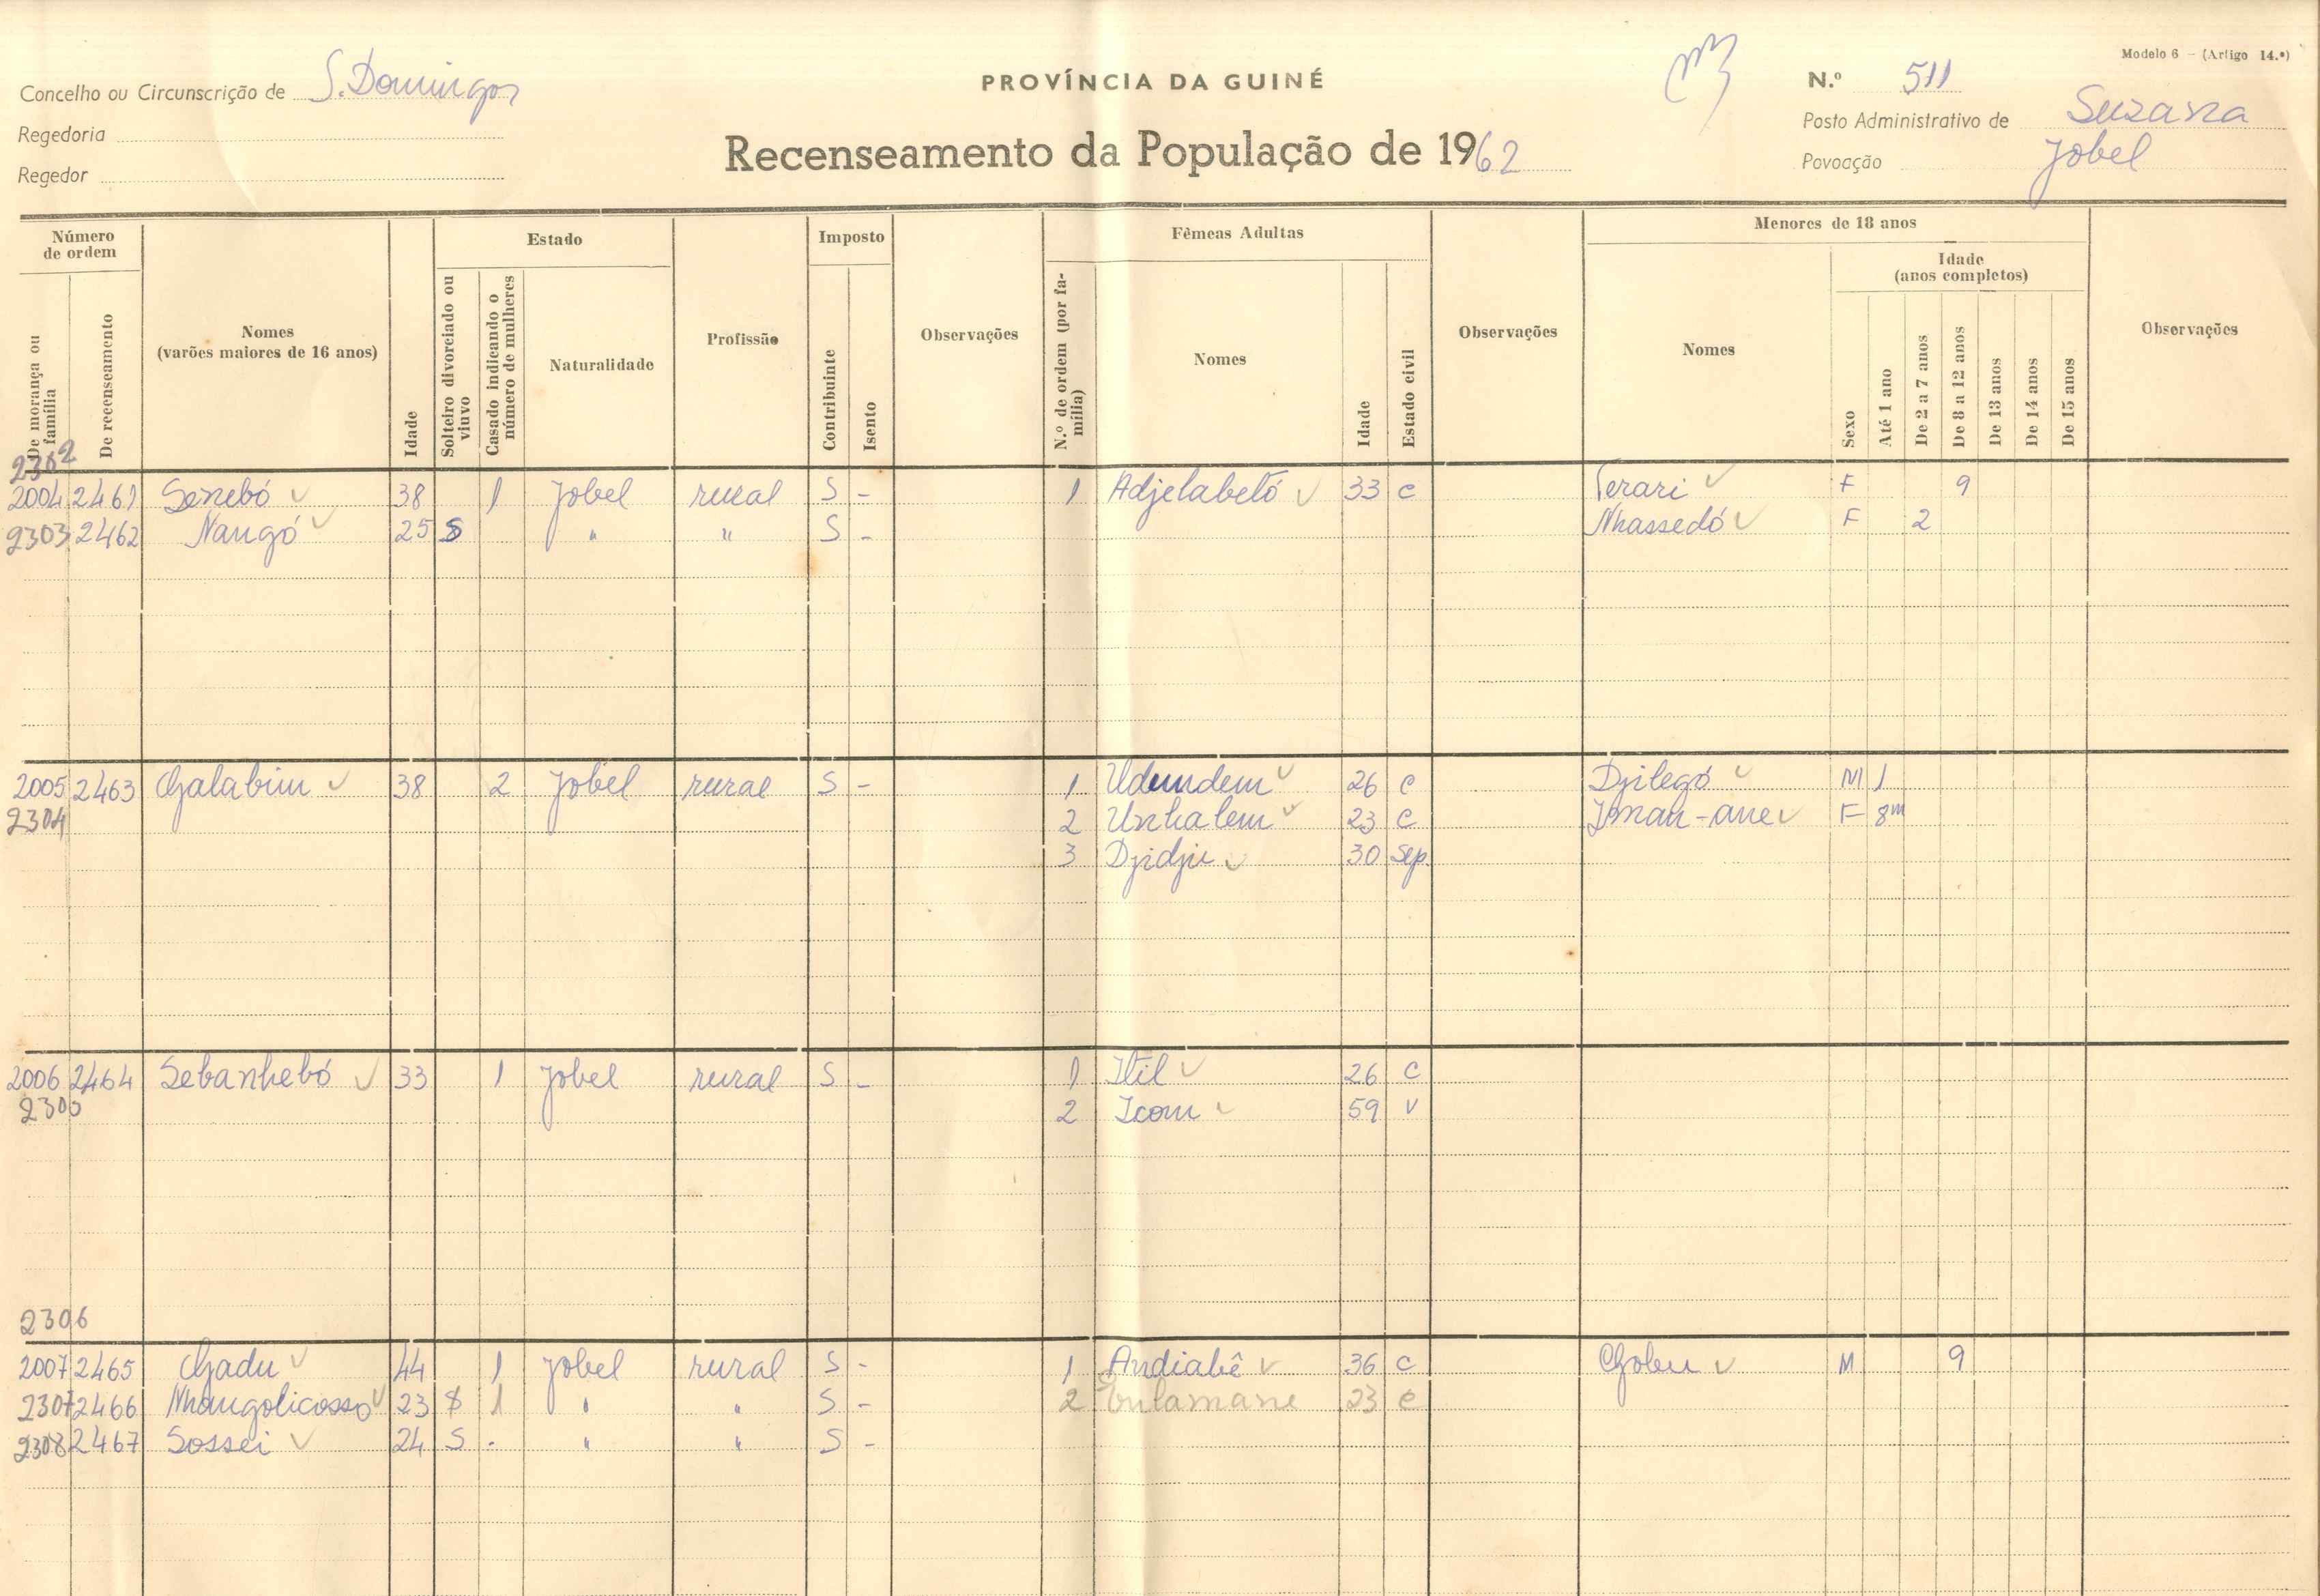 Modelo 6 — (Artigo 14.º)
Concelho ou Circunscrição de S. Domingos
PROVÍNCIA DA GUINÉ
N.º 511
Regedoria
Recenseamento da População de 1962
Posto Administrativo de Suzana
Regedor
Povoação Jobel
Número de ordem
De morança ou família
De recenseamento
Nomes (varões maiores de 16 anos)
Idade
Estado
Solteiro divorciado ou viuvo
Casado indicando o número de mulheres
Naturalidade
Profissão
Imposto
Contribuinte
Isento
Observações
Fêmeas Adultas
N.º de ordem (por família)
Nomes
Idade
Estado civil
Observações
Menores de 18 anos
Nomes
Sexo
Idade (anos completos)
Até 1 ano
De 2 a 7 anos
De 8 a 12 anos
De 13 anos
De 14 anos
De 15 anos
Observações
2302
2004 2461 Senebó 38 1 Jobel rural S - 1 Adjelabetó 33 c Terari F 9
2303 2462 Nangó 25 S " " S - Nhassedó F 2
2005 2463 Galabim 38 2 Jobel rural S - 1 Udemdem 26 c Djilegó M 1
2304 2 Unhalem 23 c F 8m
3 Djidjie 30 Sep.
2006 2464 Sebanhebó 33 1 Jobel rural S - 1 Itil 26 c
2305 2 Icom 59 v
2306
2007 2465 Gadu 44 1 Jobel rural S - 1 Andiabê 36 c Gobeu M 9
2307 2466 Nhangolicosso 23 S 1 " " S - 2 23 c
2308 2467 Sossei 24 S - " " S -